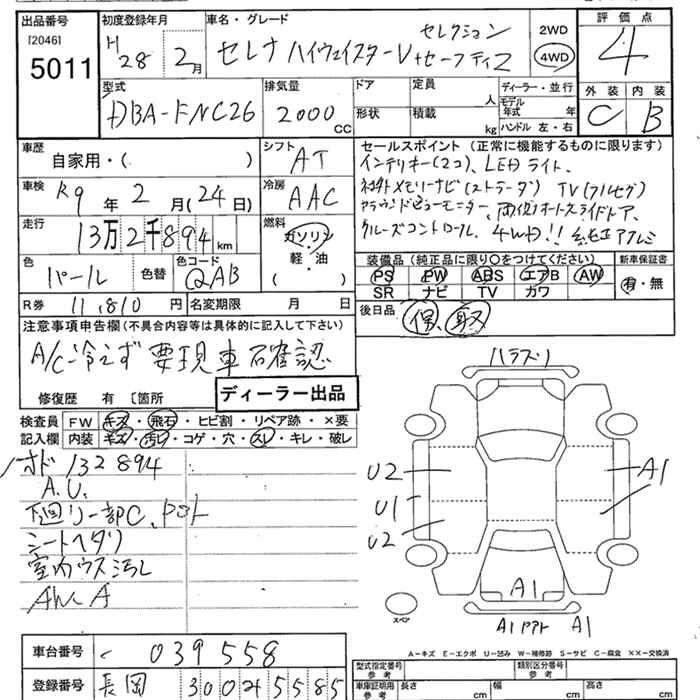 出品番号 初度登録年月 車名・グレード 評価点
[2046] 5011 H28年2月 セレナ ハイウェイスターV+セーフティ セレクション 2WD 4WD 4
型式 DBA-FNC26 排気量 2000 CC ドア 形状 定員 人 積載 kg ディーラー・並行 モデル年式 年 ハンドル 左・右 外装 C 内装 B
車歴 自家用・( ) シフト AT
セールスポイント (正常に機能するものに限ります)
インテリキー(2コ)、LEDライト、
車検 R9年2月(24日) 冷房 AAC
社外メモリーナビ(ストラーダ) TV(フルセグ)
アラウンドビューモニター、両側オートスライドドア、
走行 13万2千894km 燃料 ガソリン・軽・油 ( )
クルーズコントロール、4WD!! 純正アルミ
色 パール 色替 色コード QAB
装備品 (純正品に限り○をつけてください) 新車保証書
PS PW ABS エアB AW 有・無
SR ナビ TV カワ
R券 11,810円 名変期限 月 日
後日品 保、取
注意事項申告欄 (不具合内容等は具体的に記入して下さい)
A/C冷えず 要現車確認
修復歴 有 〔箇所
ディーラー出品
ハラズリ
検査員 FW キズ・飛石・ヒビ割・リペア跡・×要
記入欄 内装 キズ・汚レ・コゲ・穴・スレ・キレ・破レ
メーカド 132894
A.U.
下廻リ一部C、
シートヘタリ
室内ウス汚レ
AW A
U2 A1
U1
U2
A1
A1 A1
スペア
A-キズ E-エクボ U-凹み W-補修跡 S-サビ C-腐食 XX-交換済
車台番号 039558
登録番号 長岡 300 5585
型式指定番号 参考 類別区分番号 参考
車庫証明用 参考 長さ cm 幅 cm 高さ cm